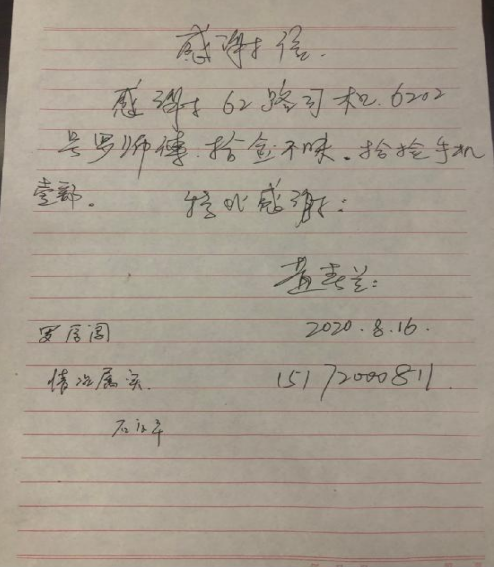 感谢信.
感谢 62路司机.6202
号罗师傅.拾金不昧。拾捡手机
壹部。 特此感谢:
黄春兰:
2020.8.16.
情况属实. 15172000811.